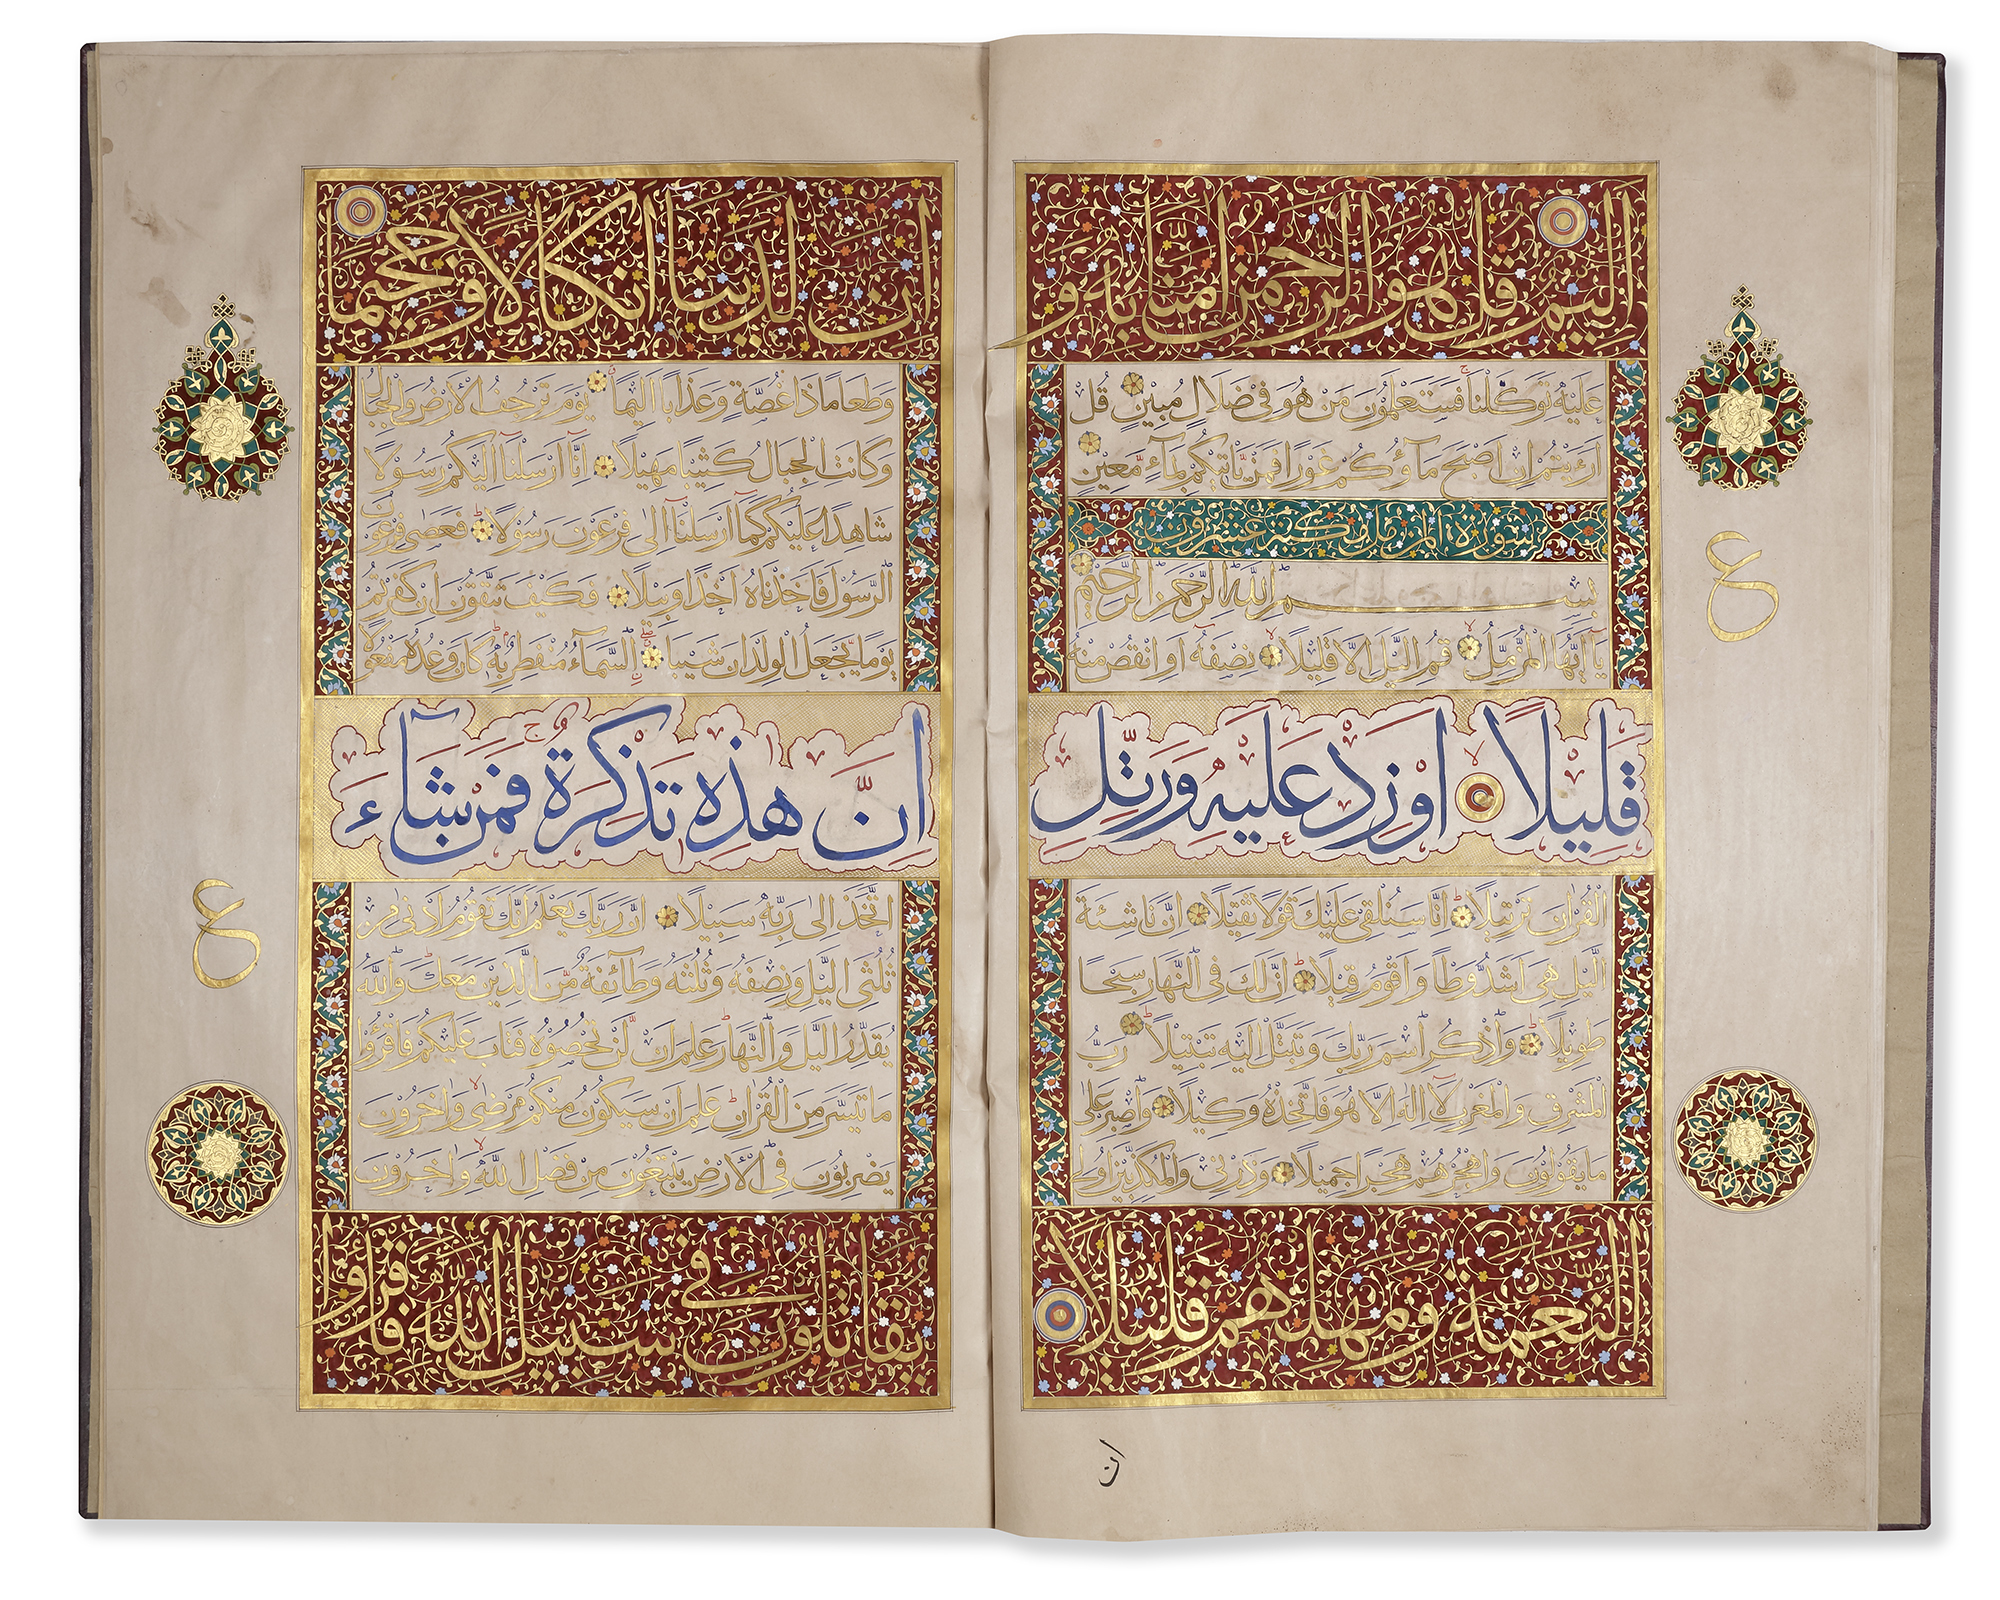 اليم قل هو الرحمن امنا به و
عليه توكلنا فستعلمون من هو في ضلال مبين قل
ارءيتم ان اصبح ماؤكم غورا فمن ياتيكم بماء معين
سورة المزمل مكية عشرون
بسم الله الرحمن الرحيم
يا ايها المزمل قم اليل الا قليلا نصفه او انقص منه
قليلا او زد عليه ورتل
القران ترتيلا انا سنلقي عليك قولا ثقيلا ان ناشئة
اليل هي اشد وطأ واقوم قيلا ان لك في النهار سبحا
طويلا واذكر اسم ربك وتبتل اليه تبتيلا رب
المشرق والمغرب لا اله الا هو فاتخذه وكيلا واصبر على
ما يقولون واهجرهم هجرا جميلا وذرني والمكذبين اولي
النعمة ومهلهم قليلا
ان
ع
ان لدينا انكالا وجحيما
وطعاما ذا غصة وعذابا اليما يوم ترجف الارض والجبال
وكانت الجبال كثيبا مهيلا انا ارسلنا اليكم رسولا
شاهدا عليكم كما ارسلنا الى فرعون رسولا فعصى فرعون
الرسول فاخذناه اخذا وبيلا فكيف تتقون ان كفرتم
يوما يجعل الولدان شيبا السماء منفطر به كان وعده مفعولا
ان هذه تذكرة فمن شاء
اتخذ الى ربه سبيلا ان ربك يعلم انك تقوم ادنى من
ثلثي اليل ونصفه وثلثه وطائفة من الذين معك والله
يقدر اليل والنهار علم ان لن تحصوه فتاب عليكم فاقرؤا
ما تيسر من القران علم ان سيكون منكم مرضى واخرون
يضربون في الارض يبتغون من فضل الله واخرون
يقاتلون في سبيل الله فاقرؤا
ع